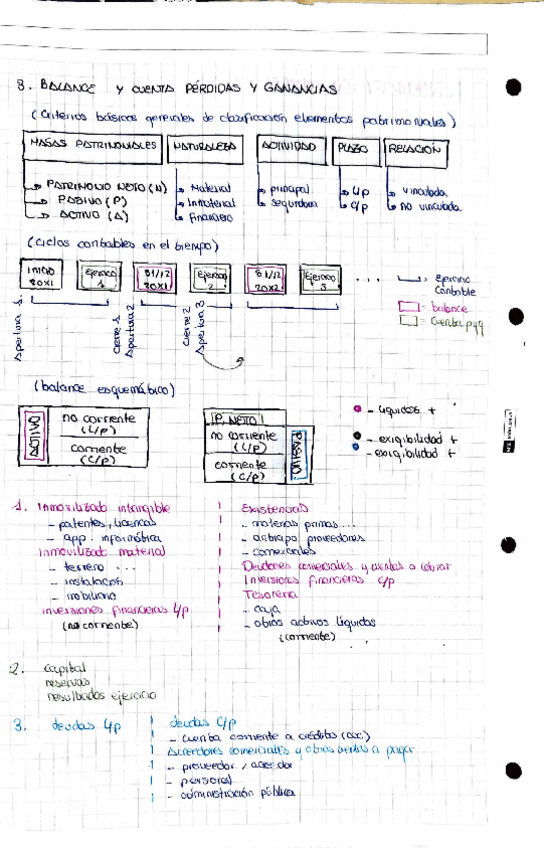 3. BALANCE Y CUENTA PÉRDIDAS Y GANANCIAS
(Criterios básicos generales de clasificación elementos patrimoniales)
MASAS PATRIMONIALES NATURALEZA ACTIVIDAD PLAZO RELACIÓN
PATRIMONIO NETO (N) Material principal L/p vinculada
PASIVO (P) Inmaterial segundaria C/p no vinculada
ACTIVO (A) Financiero
(Ciclos contables en el tiempo)
INICIO 20X1 Ejercicio 1 31/12 20X1 Ejercicio 2 31/12 20X2 Ejercicio 3 ... Ejercicio Contable
= balance
= Cuenta pyg
Apertura 1 Cierre 1 Apertura 2 Cierre 2 Apertura 3
(balance esquemático)
ACTIVO no corriente (L/p) P. NETO
corriente (C/p) no corriente (L/p) PASIVO
corriente (C/p)
- líquidos +
- exigibilidad +
- exigibilidad +
1. Inmovilizado intangible
- patentes, licencias
- app. informática
Inmovilizado material
- terreno ...
- instalación
- mobiliario
inversiones financieras L/p
(no corriente)
Existencias
- materias primas ...
- anticipo proveedores
- comerciales
Deudores comerciales y cuentas a cobrar
Inversiones financieras c/p
Tesorería
- caja
- otros activos líquidos
(corriente)
2. Capital
reservas
resultados ejercicio
3. deudas L/p
deudas C/p
- cuenta corriente a créditos
Acreedores comerciales y otras cuentas a pagar
- proveedor / acreedor
- personal
- administración pública